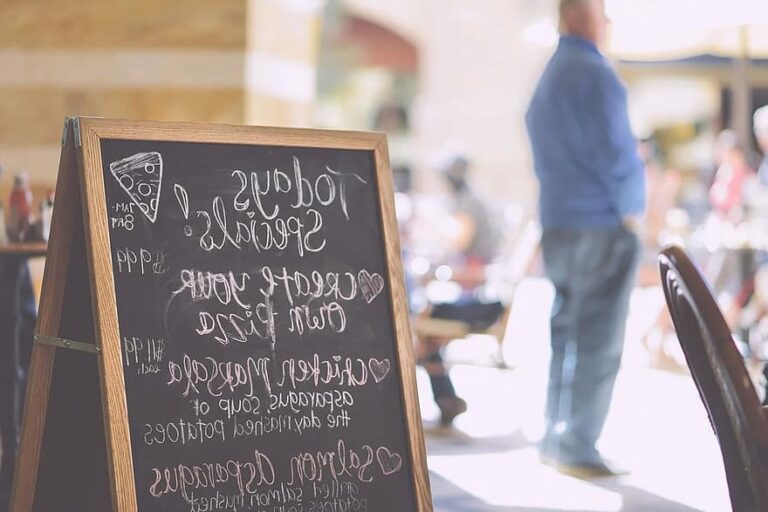 Todays
Specials!
create your
own pizza
9.99
chicken Marsala
$11.99
each
asparagus soup of
the day mashed potatoes
Salmon Asparagus
grilled salmon mashed
potatoes soup